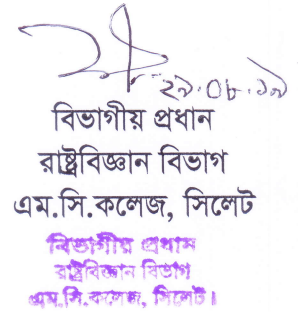 ২৯.০৮.১৯
বিভাগীয় প্রধান
রাষ্ট্রবিজ্ঞান বিভাগ
এম.সি.কলেজ, সিলেট
বিভাগীয় প্রধান
রাষ্ট্রবিজ্ঞান বিভাগ
এম.সি.কলেজ, সিলেট।